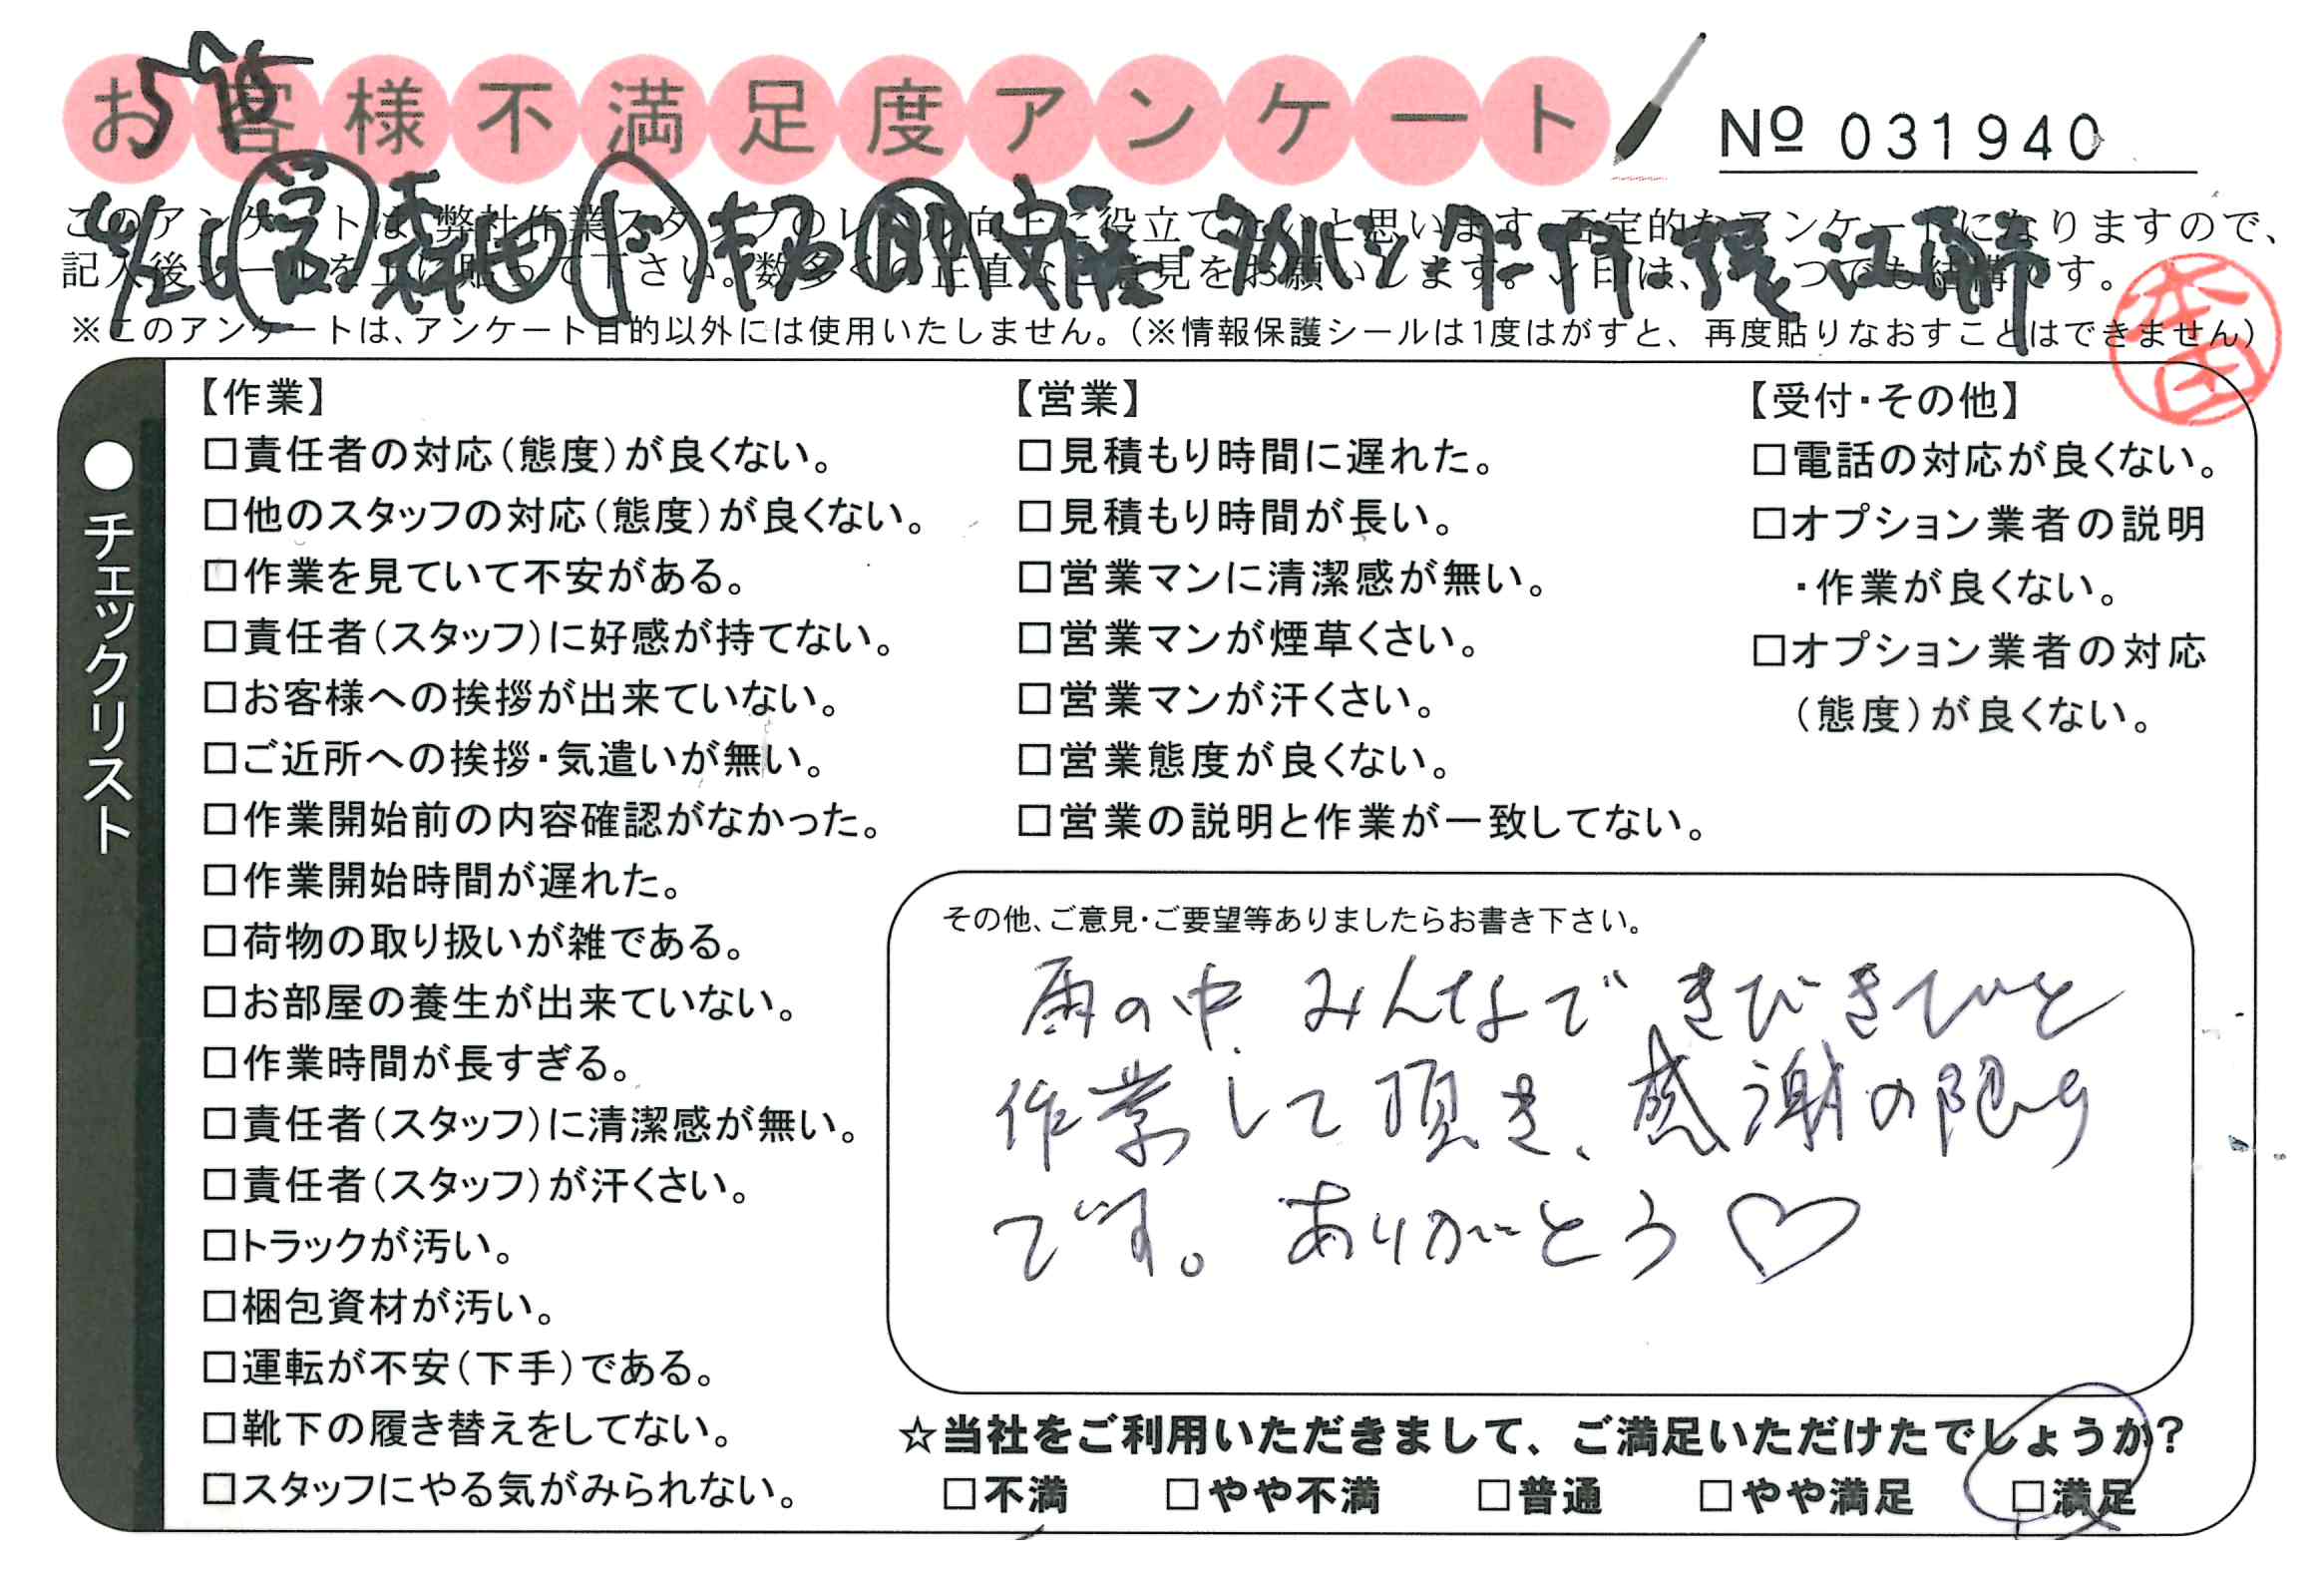 お客様不満足度アンケート
№ 031940
このアンケートは、弊社作業スタッフのレベル向上に役立てたいと思います。否定的なアンケートになりますので、
記入後シールを上に貼って下さい。数多くの正直なご意見をお願いします。レ印は、いくつでも結構です。
※このアンケートは、アンケート目的以外には使用いたしません。(※情報保護シールは1度はがすと、再度貼りなおすことはできません)
本田
●チェックリスト
【作業】
□責任者の対応(態度)が良くない。
□他のスタッフの対応(態度)が良くない。
□作業を見ていて不安がある。
□責任者(スタッフ)に好感が持てない。
□お客様への挨拶が出来ていない。
□ご近所への挨拶・気遣いが無い。
□作業開始前の内容確認がなかった。
□作業開始時間が遅れた。
□荷物の取り扱いが雑である。
□お部屋の養生が出来ていない。
□作業時間が長すぎる。
□責任者(スタッフ)に清潔感が無い。
□責任者(スタッフ)が汗くさい。
□トラックが汚い。
□梱包資材が汚い。
□運転が不安(下手)である。
□靴下の履き替えをしてない。
□スタッフにやる気がみられない。
【営業】
□見積もり時間に遅れた。
□見積もり時間が長い。
□営業マンに清潔感が無い。
□営業マンが煙草くさい。
□営業マンが汗くさい。
□営業態度が良くない。
□営業の説明と作業が一致してない。
【受付・その他】
□電話の対応が良くない。
□オプション業者の説明
・作業が良くない。
□オプション業者の対応
(態度)が良くない。
その他、ご意見・ご要望等ありましたらお書き下さい。
雨の中 みんなで きびきびと
作業して頂き、感謝の限り
です。ありがとう♡
☆当社をご利用いただきまして、ご満足いただけたでしょうか?
□不満 □やや不満 □普通 □やや満足 □満足